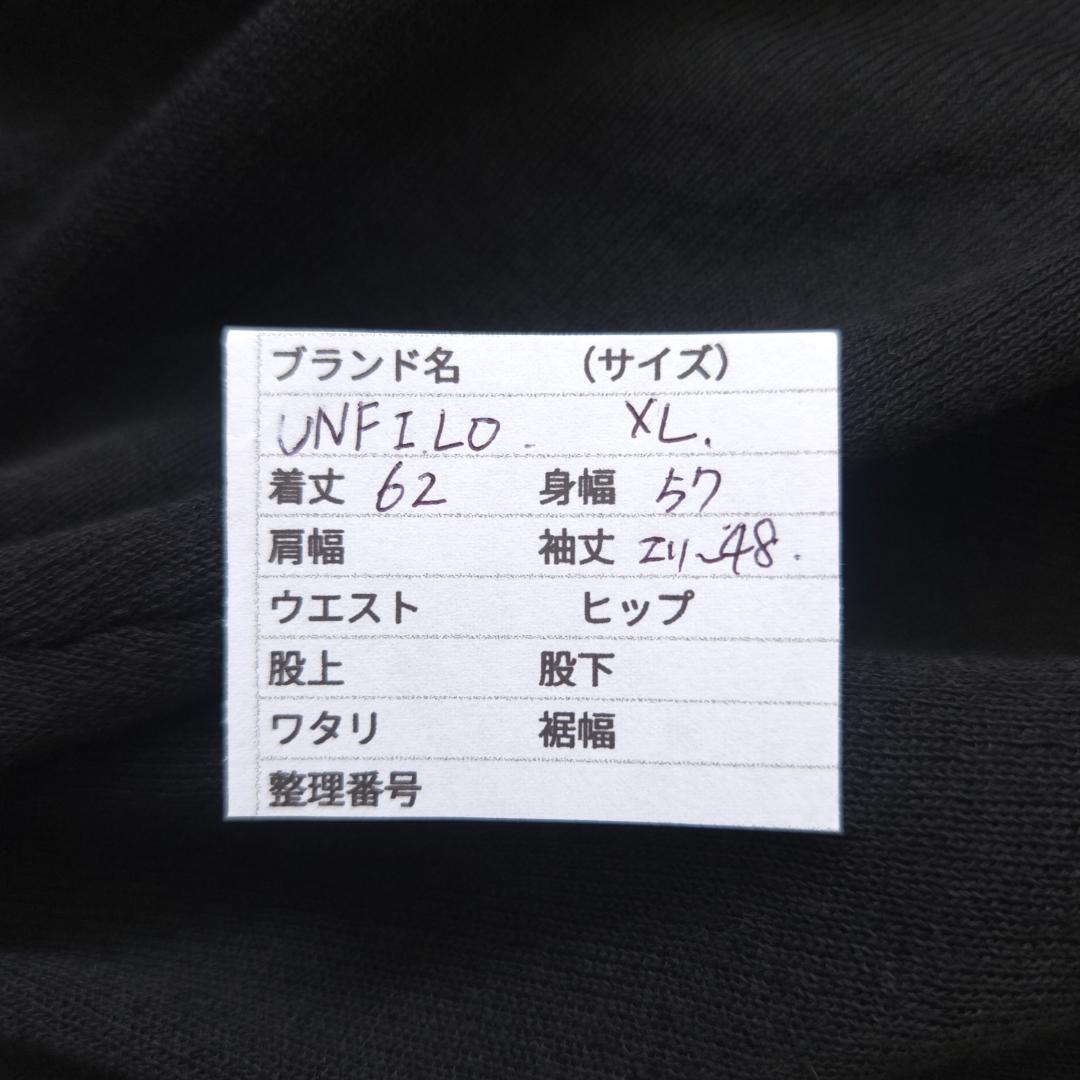 ブランド名 (サイズ)
UNFILO. XL.
着丈 62 身幅 57
肩幅 袖丈 エリ~48.
ウエスト ヒップ
股上 股下
ワタリ 裾幅
整理番号